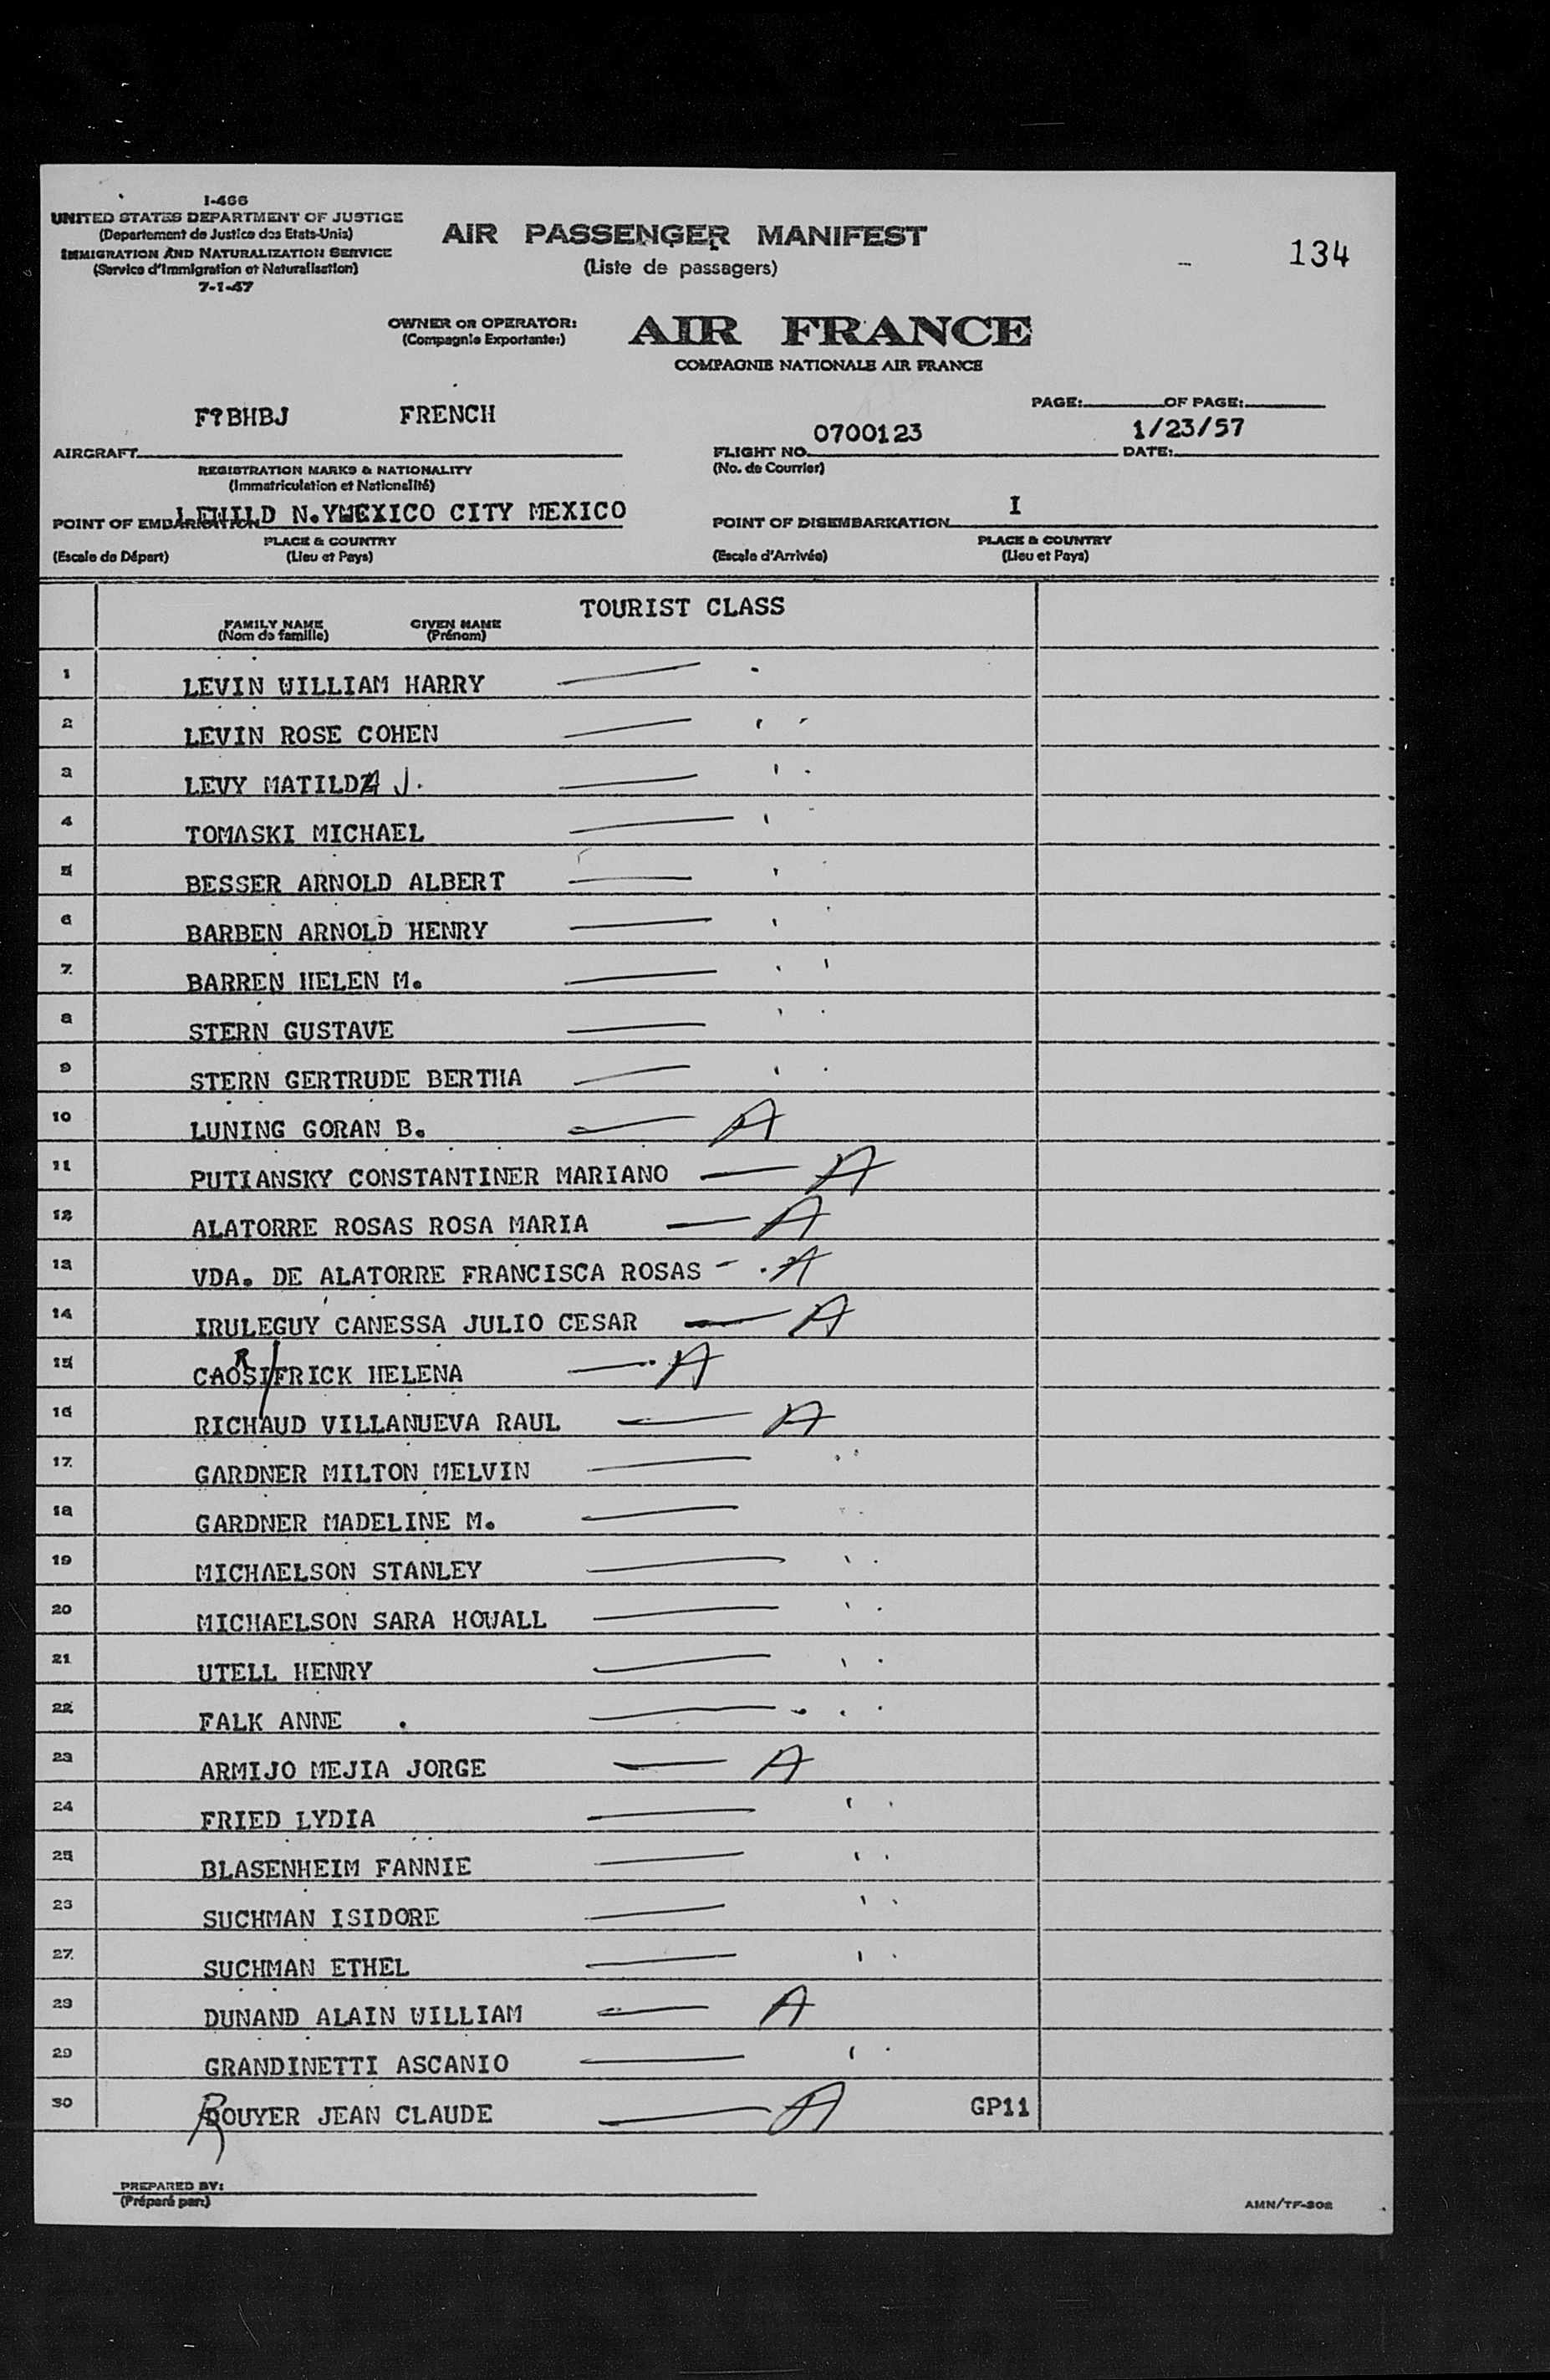 I-466
UNITED STATES DEPARTMENT OF JUSTICE
(Departement de Justice des Etats-Unis)
IMMIGRATION AND NATURALIZATION SERVICE
(Service d'Immigration et Naturalisation)
7-1-47
AIR PASSENGER MANIFEST
(Liste de passagers)
134
OWNER OR OPERATOR:
(Compagnie Exportante:)
AIR FRANCE
COMPAGNIE NATIONALE AIR FRANCE
PAGE: OF PAGE:
F?BHBJ FRENCH
0700123 1/23/57
AIRCRAFT
FLIGHT NO. DATE:
REGISTRATION MARKS & NATIONALITY
(No. de Courrier)
(Immatriculation et Nationalité)
N.Y MEXICO CITY MEXICO
I
POINT OF EMBARKATION
POINT OF DISEMBARKATION
PLACE & COUNTRY
PLACE & COUNTRY
(Escale de Départ) (Lieu et Pays)
(Escale d'Arrivée) (Lieu et Pays)
TOURIST CLASS
FAMILY NAME GIVEN NAME
(Nom de famille) (Prénom)
1 LEVIN WILLIAM HARRY
2 LEVIN ROSE COHEN
3 LEVY MATILDA J.
4 TOMASKI MICHAEL
5 BESSER ARNOLD ALBERT
6 BARBEN ARNOLD HENRY
7 BARREN HELEN M.
8 STERN GUSTAVE
9 STERN GERTRUDE BERTHA
10 LUNING GORAN B. A
11 PUTIANSKY CONSTANTINER MARIANO A
12 ALATORRE ROSAS ROSA MARIA A
13 VDA. DE ALATORRE FRANCISCA ROSAS A
14 IRULEGUY CANESSA JULIO CESAR A
15 CAORSI/FRICK HELENA A
16 RICHAUD VILLANUEVA RAUL A
17 GARDNER MILTON MELVIN
18 GARDNER MADELINE M.
19 MICHAELSON STANLEY
20 MICHAELSON SARA HOWALL
21 UTELL HENRY
22 FALK ANNE .
23 ARMIJO MEJIA JORGE A
24 FRIED LYDIA
25 BLASENHEIM FANNIE
26 SUCHMAN ISIDORE
27 SUCHMAN ETHEL
28 DUNAND ALAIN WILLIAM A
29 GRANDINETTI ASCANIO
30 ROUYER JEAN CLAUDE A GP11
PREPARED BY:
(Préparé par:)
AMN/TF-302